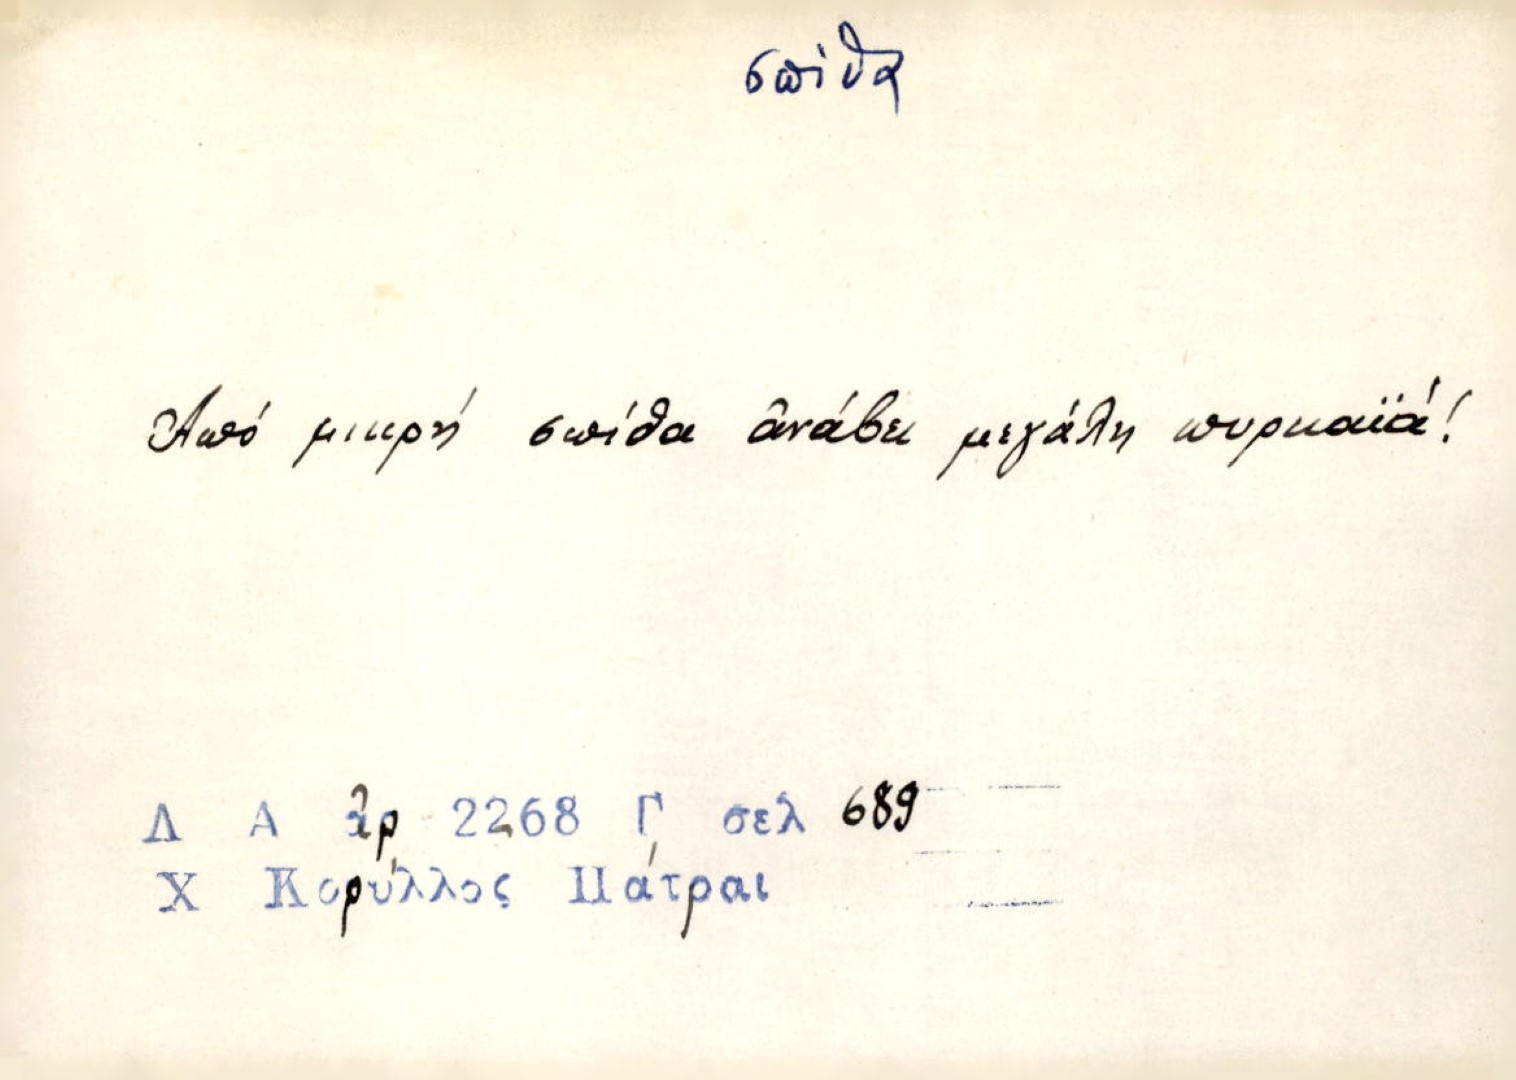 σπίθα
Ἀπό μικρή σπίθα ἀνάβει μεγάλη πυρκαϊά!
Λ Α ἀρ 2268 Γ σελ 689
Χ Κορύλλος Πάτραι